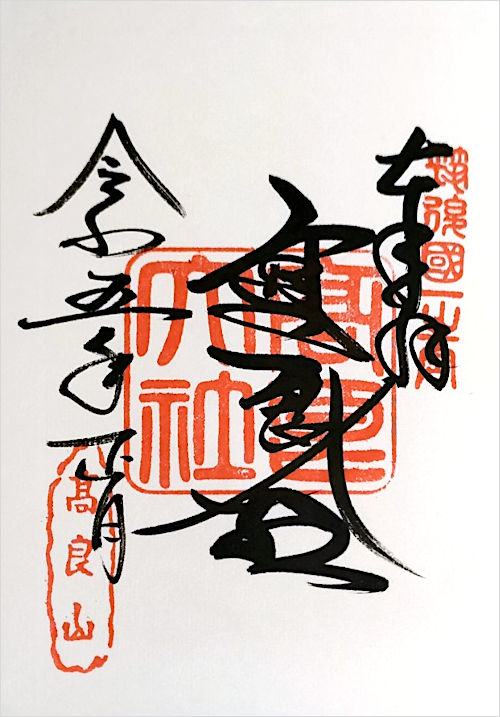 奉拝
筑後國一之宮
高良
大社
令和五年正月
高良山